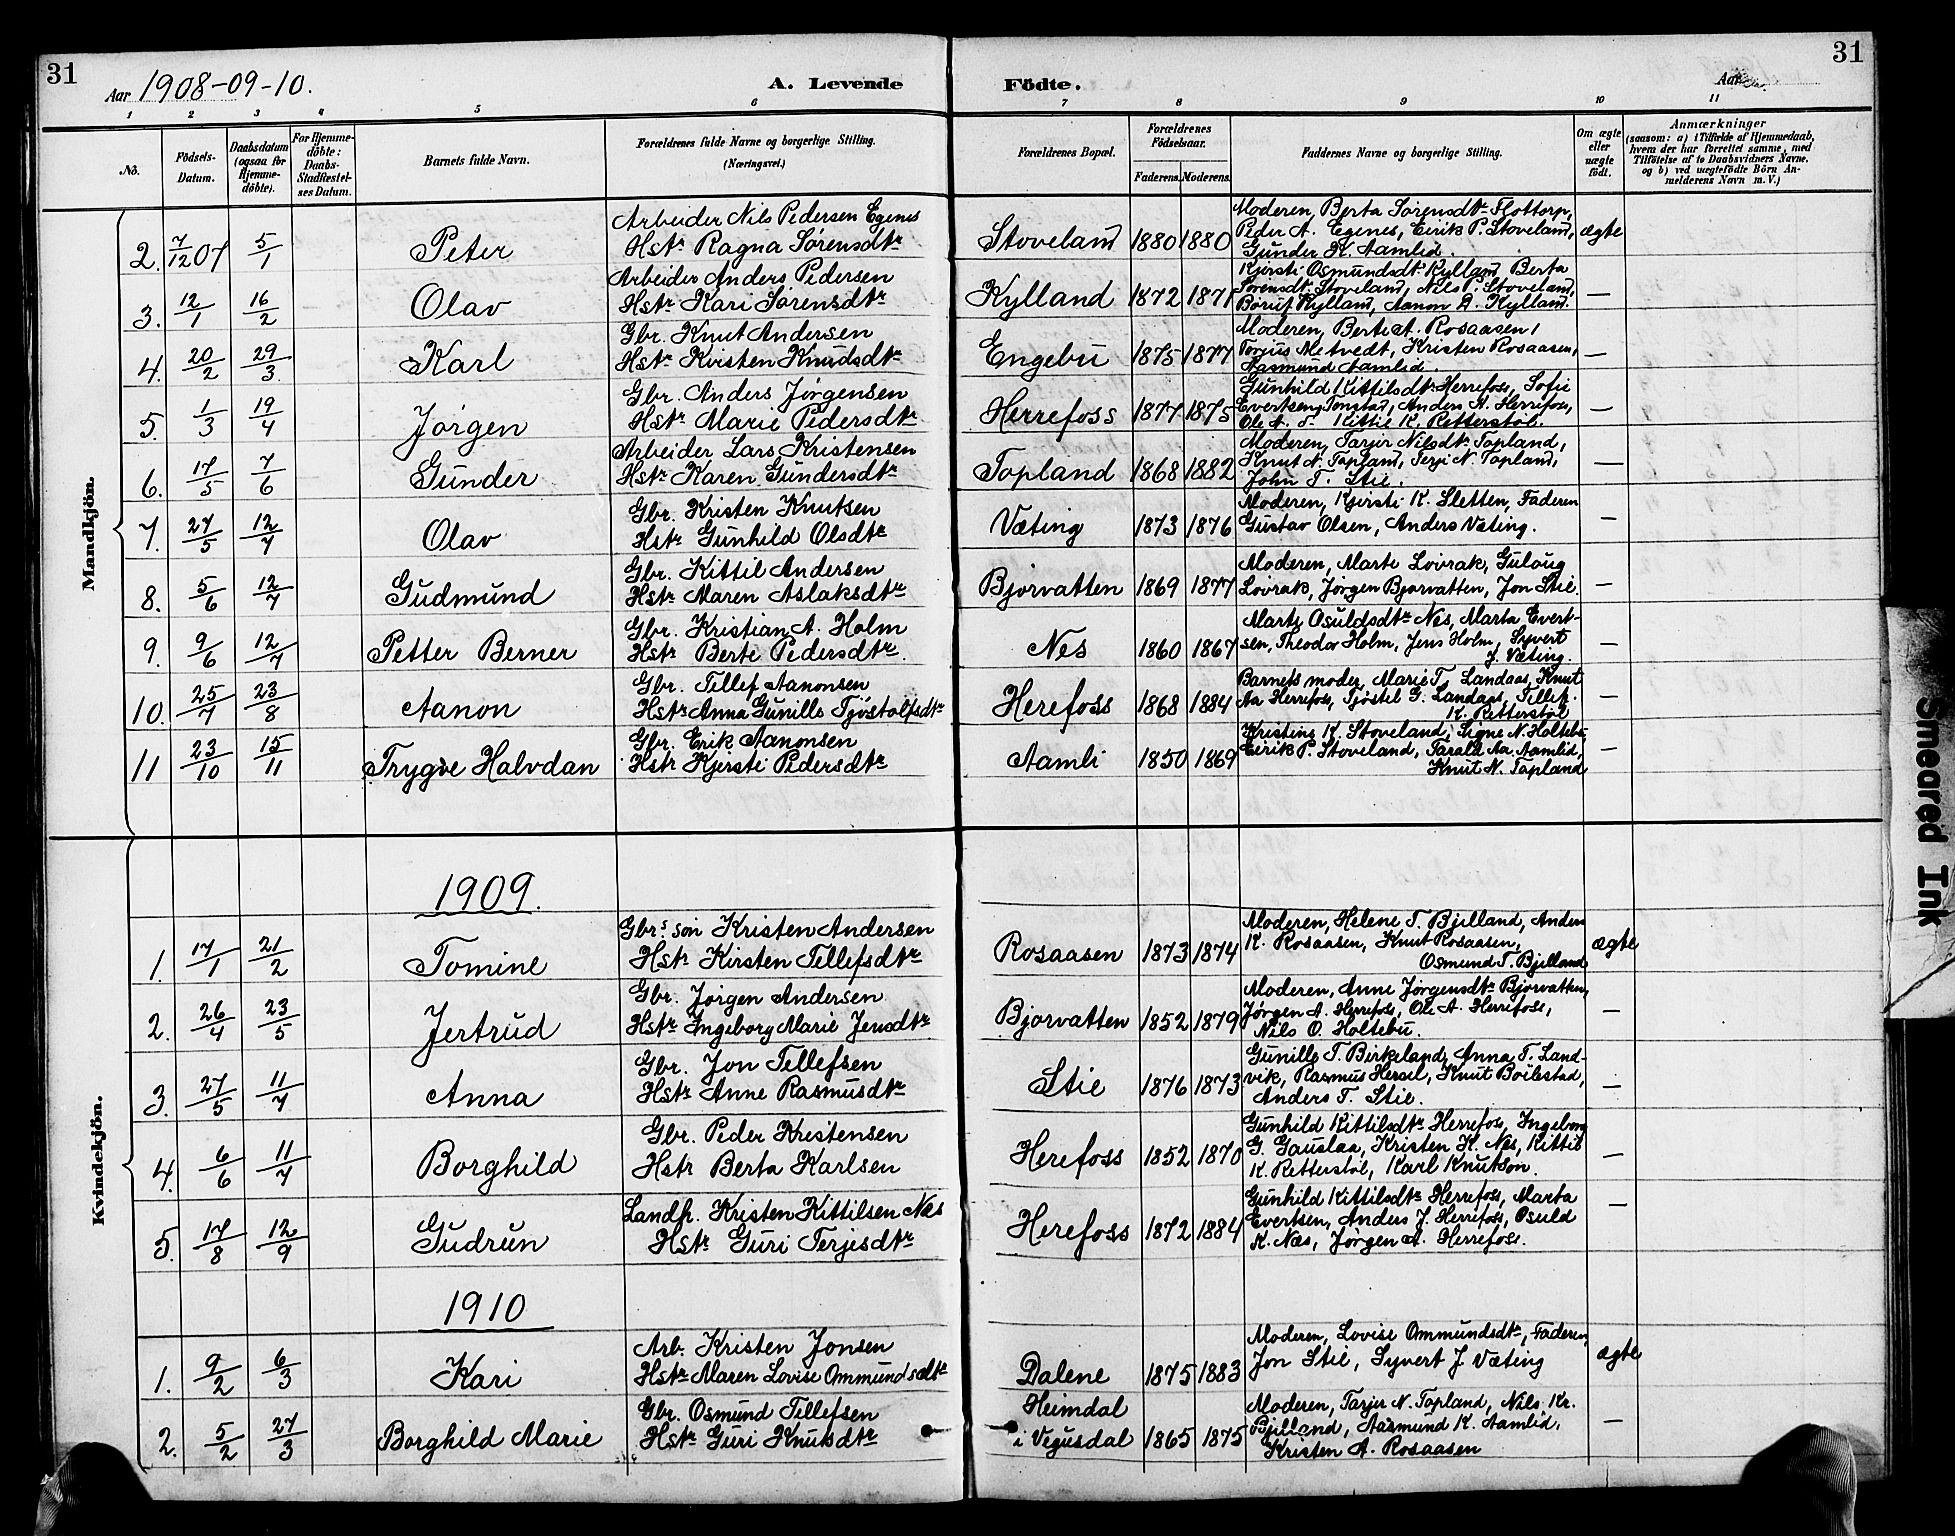 31
Aar 1908-09-10.
A. Levende Födte.
Aar
31
1 2 3 4 5 6 7 8 9 10 11
No.
Födsels-Datum.
Daabsdatum (ogsaa for Hjemmedöbte).
For Hjemmedöbte: Daabs-Stadfæstelses Datum.
Barnets fulde Navn.
Forældrenes fulde Navne og borgerlige Stilling.
(Næringsvei.)
Forældrenes Bopæl.
Forældrenes Födselsaar.
Faderens. Moderens.
Faddernes Navne og borgerlige Stilling.
Om ægte eller uægte födt.
Anmærkninger
(saasom: a) i Tilfælde af Hjemmedaab,
hvem der har forrettet samme, med
Tilföielse af to Daabsvidners Navne.
og b) ved uægtefödte Börn An-
melderens Navn m. V.)
Mandkjön.
2. 7/12 07 5/1 Peter
Arbeider Nils Pedersen Egenes
Hstr Ragna Sørensdtr
Stoveland 1880 1880
Moderen, Berta Sørensdtr Flottorp,
Peder A. Egenes, Eirik P. Stoveland,
Gunder K. Aamlid.
ægte
3. 12/1 16/2 Olav
Arbeider Anders Pedersen
Hstr Kari Sørensdtr
Kylland 1872 1871
Kjersti Osmundsdtr Kylland, Berta
Sørensdtr Stoveland, Nils P. Stoveland,
Kylland, Aanon A. Kylland.
—
4. 20/2 29/3 Karl
Gbr. Knut Andersen
Hstr Kristen Knudsdtr
Engebu 1875 1877
Moderen, Berte A. Rosaasen,
Torjus Metvedt, Kristen Rosaasen,
Aasmund Aamlid.
—
5. 1/3 19/4 Jørgen
Gbr. Anders Jørgensen
Hstr Marie Pedersdtr
Herrefoss 1877 1875
Gunhild Kittilsdtr Herrefoss, Sofie
Evertsen Tonstad, Anders A. Herrefoss,
Ole A. T. Kittil K. Retterstøl.
—
6. 17/5 7/6 Gunder
Arbeider Lars Kristensen
Hstr Karen Gundersdtr
Topland 1868 1882
Moderen, Tarjer Nilsdtr Topland,
Knut N. Topland, Terje N. Topland,
John T. Stie.
—
7. 27/5 12/7 Olav
Gbr. Kristen Knutsen
Hstr Gunhild Olsdtr
Væting 1873 1876
Moderen, Kjersti K. Sletten, Faderen
Gustav Olsen, Anders Væting.
—
8. 5/6 12/7 Gudmund
Gbr. Kittil Andersen
Hstr Maren Aslaksdtr
Bjorvatten 1869 1877
Moderen, Marte Lovrak, Gulaug
Lovrak, Jørgen Bjorvatten, Jon Stie.
—
9. 9/6 12/7 Petter Berner
Gbr. Kristian A. Holm
Hstr Berte Pedersdtr.
Nes 1860 1867
Marte Osuldsdtr Nes, Marta Evert-
sen, Theodor Holm, Jens Holm, Syvert
J. Væting.
—
10. 25/7 23/8 Aanon
Gbr. Tellef Aanonsen
Hstr Anna Gunille Tjøstolfsdtr
Herefoss 1868 1884
Barnets moder, Marie T. Landaas, Knut
Aa Herrefoss, Tjøstel G. Landaas, Tellef
K. Retterstøl
—
11 23/10 15/11 Trygve Halvdan
Gbr. Erik Aanonsen
Hstr Kjersti Pedersdtr
Aamli 1850 1869
Kristine K. Stoveland, Signe N. Holtebu
Eirik P. Stoveland, Tarald Aa. Aamlid,
Knut N. Topland
—
Kvindekjön.
1909.
1. 17/1 21/2 Tomine
Gbrs. søn Kristen Andersen
Hstr Kirsten Tellefsdtr
Rosaasen 1873 1874
Moderen, Helene T. Bjelland, Anders
K. Rosaasen, Knut Rosaasen,
Osmund T. Bjelland
ægte
2. 26/4 23/5 Jertrud
Gbr. Jørgen Andersen
Hstr Ingeborg Marie Jensdtr
Bjorvatten 1852 1879
Moderen, Anne Jørgensdtr Bjorvatten,
Jørgen A. Herrefoss, Ole A. Herrefoss,
Nils O. Holtebu.
—
3. 27/5 11/7 Anna
Gbr. Jon Tellefsen
Hstr Anne Rasmusdtr
Stie 1876 1873
Gunille T. Birkeland, Anna T. Land-
vik, Rasmus Hersel, Knut Boilestad,
Anders T. Stie.
—
4. 6/6 11/7 Borghild
Gbr. Peder Kristensen
Hstr Berta Karlsen
Herefoss 1852 1870
Gunhild Kittilsdtr Herrefoss, Ingeborg
G. Gauslaa, Kristen K. Nes, Kittil
K. Retterstøl, Karl Knutson.
—
5. 17/8 12/9 Gudrun
Landh. Kristen Kittilsen Næs
Hstr Guri Terjesdtr
Herefoss 1872 1884
Gunhild Kittilsdtr Herrefoss, Marta
Evertsen, Anders J. Herrefoss, Osuld
K. Næs, Jørgen A. Herrefoss.
—
1910
1. 9/2 6/3 Kari
Arb. Kristen Jonsen
Hstr Maren Lovise Ommundsdtr
Dalene 1875 1883
Moderen, Lovise Ommundsdtr, Faderen,
Jon Stie, Syvert J. Væting
ægte
2. 5/2 27/3 Borghild Marie
Gbr. Osmund Tellefsen
Hstr Guri Knutsdtr
Heimdal
i Vegusdal 1865 1875
Moderen, Tarjer N. Topland, Nils Kr.
Bjelland, Aasmund K. Aamlid,
Kristen A. Rosaasen
—
Smeared Ink